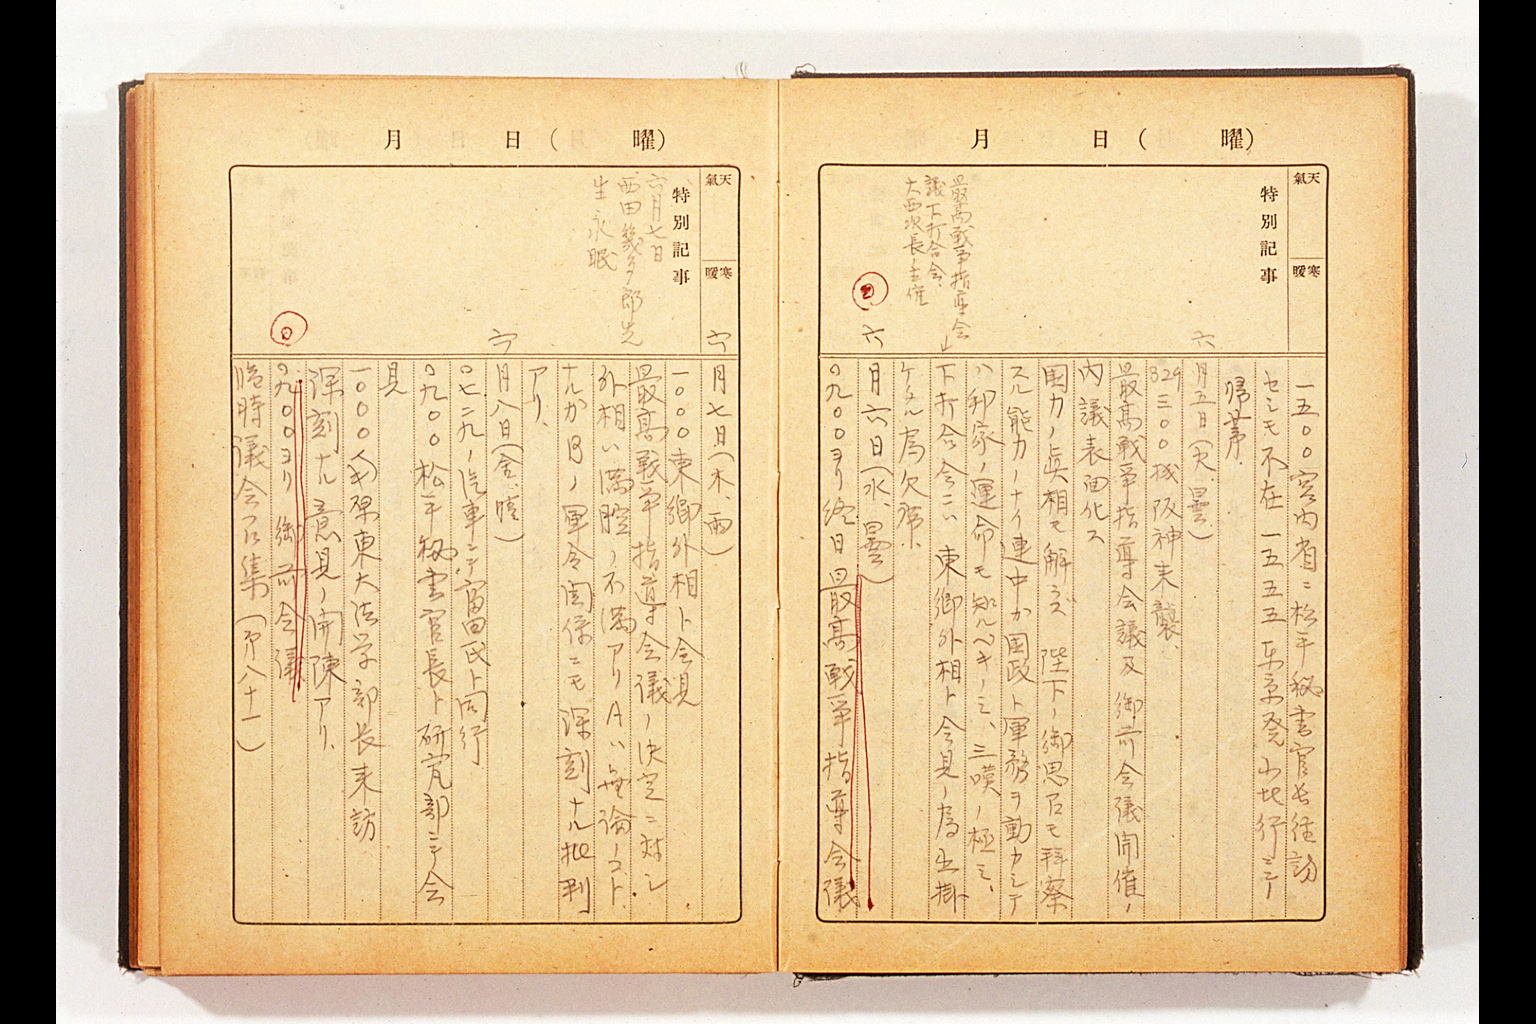 月 日( 曜)
天氣
寒暖
特別記事
最高戦争指導会
議下打合会、
大西次長ノ主催
一五〇〇宮内省ニ松平秘書官長往訪
セシモ不在 一五五五東京発 ニテ
帰茅、
六
月五日(火、曇)
B29 三〇〇機阪神来襲、
最高戦争指導会議及御前会議開催ノ
内議表面化ス
国力ノ真相モ解ラズ 陛下ノ御思召モ拝察
スル能力ノナイ連中カ国政ト軍務ヲ動カシテ
ハ邦家ノ運命モ知ルベキノミ、三嘆ノ極ミ、
下打合会ニハ東郷外相ト会見ノ為出掛
ケタル為欠席、
六
月六日(水、曇)
〇九〇〇ヨリ終日最高戦争指導会議
月 日( 曜)
天氣
寒暖
特別記事
六月七日
西田幾多郎先
生永眠
六
月七日(木、雨)
一〇〇〇東郷外相ト会見
最高戦争指導会議ノ決定ニ対シ
外相ハ満腔ノ不満アリAハ無論ノコト
ナルガBノ軍令関係ニモ深刻ナル批判
アリ、
六
月八日(金、晴)
〇七二九ノ汽車ニテ富田氏ト同行
〇九〇〇松平秘書官長ト研究部ニテ会
見
一〇〇〇 原東大法学部長来訪
深刻ナル意見ノ開陳アリ、
〇九〇〇ヨリ御前会議
臨時議会召集(第八十一)